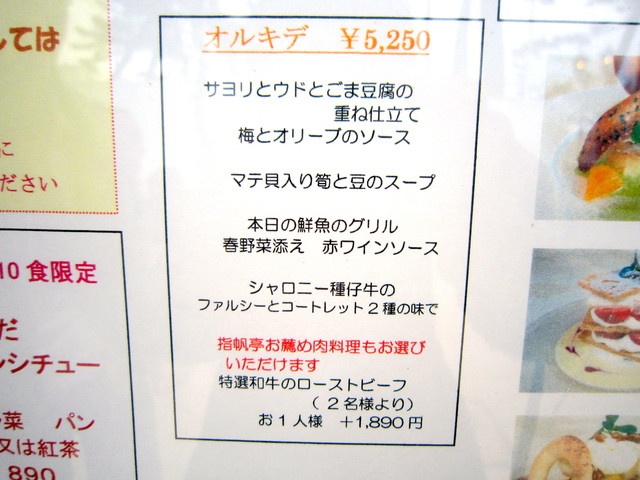 しては
に
ださい
オルキデ ￥5,250
サヨリとウドとごま豆腐の
重ね仕立て
梅とオリーブのソース
マテ貝入り筍と豆のスープ
本日の鮮魚のグリル
春野菜添え 赤ワインソース
シャロニー種仔牛の
ファルシーとコートレット2種の味で
指帆亭お薦め肉料理もお選び
いただけます
特選和牛のローストビーフ
（2名様より）
お1人様 ＋1,890円
10食限定
だ
ルシチュー
菜 パン
又は紅茶
890